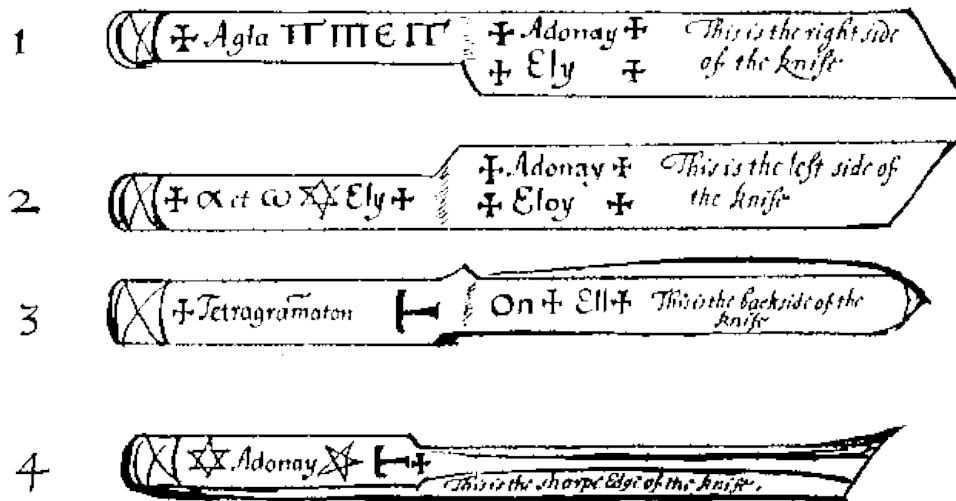 1
✠ Agla ΠΠ ΠΙ Є ΙΓ
✠ Adonay ✠
✠ Ely ✠
This is the right side
of the knife
2
✠ α et ω ✡ Ely ✠
✠ Adonay ✠
✠ Eloy ✠
This is the left side of
the knife
3
✠ Tetragram̄aton
On ✠ Ell ✠
This is the backside of the
knife
4
✡ Adonay ⛤ ✠
This is the sharpe Edge of the knife.